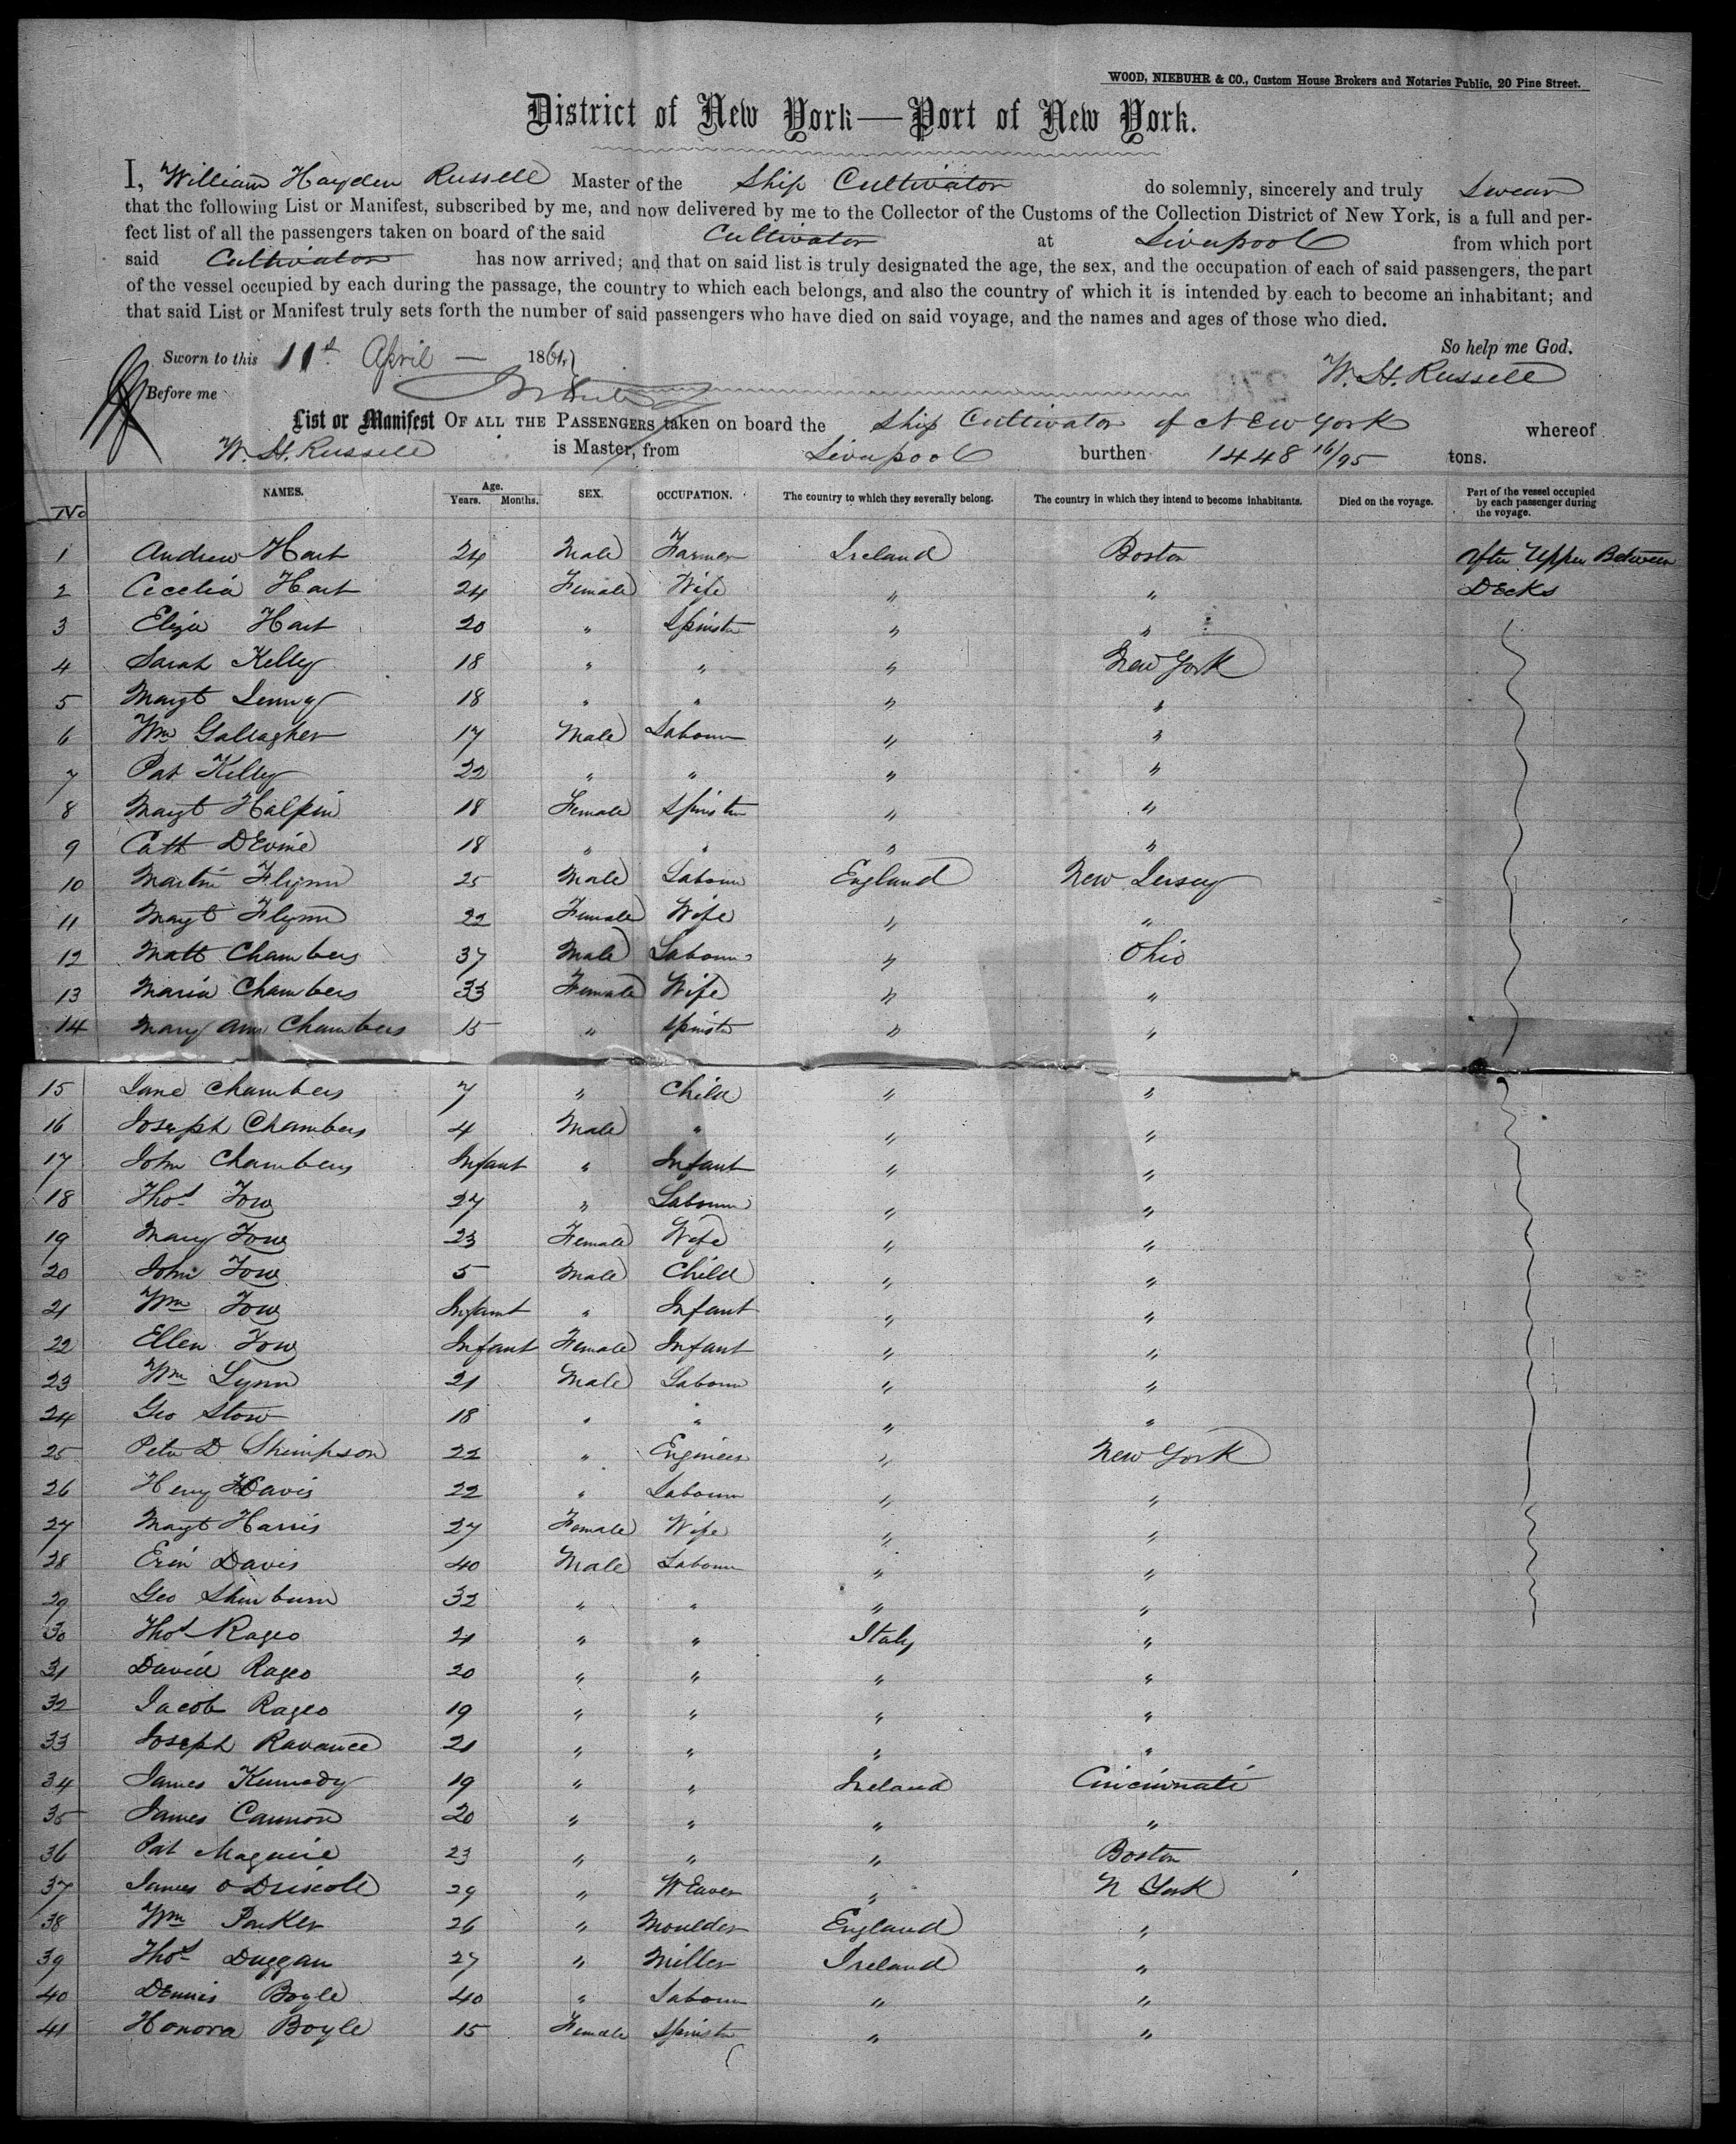 WOOD, NIEBUHR & CO., Custom House Brokers and Notaries Public, 20 Pine Street.
District of New York—Port of New York.
I, William Hayden Russell Master of the Ship Cultivator do solemnly, sincerely and truly Swear
that the following List or Manifest, subscribed by me, and now delivered by me to the Collector of the Customs of the Collection District of New York, is a full and per-
fect list of all the passengers taken on board of the said Cultivator at Liverpool from which port
said Cultivator has now arrived; and that on said list is truly designated the age, the sex, and the occupation of each of said passengers, the part
of the vessel occupied by each during the passage, the country to which each belongs, and also the country of which it is intended by each to become an inhabitant; and
that said List or Manifest truly sets forth the number of said passengers who have died on said voyage, and the names and ages of those who died.
Sworn to this 11th April — 1861 So help me God.
Before me W. H. Russell
List or Manifest OF ALL THE PASSENGERS taken on board the Ship Cultivator of New York whereof
W. H. Russell is Master, from Liverpool burthen 1448 16/95 tons.
No NAMES. Age. Years. Months. SEX. OCCUPATION. The country to which they severally belong. The country in which they intend to become inhabitants. Died on the voyage. Part of the vessel occupied by each passenger during the voyage.
1 Andrew Hart 24 Male Farmer Ireland Boston After Upper Between
2 Cecelia Hart 24 Female Wife " " Decks
3 Eliza Hart 20 " Spinster " "
4 Sarah Kelly 18 " " " New York
5 Margt 18 " " " "
6 Wm Gallagher 17 Male Labourer " "
7 Pat Kelly 22 " " " "
8 Margt Halpin 18 Female Spinster " "
9 Cath DEvine 18 " " " "
10 Martin Flynn 25 Male Labourer England New Jersey
11 Margt Flynn 22 Female Wife " "
12 Matt Chambers 37 Male Labourer " Ohio
13 Maria Chambers 33 Female Wife " "
14 Mary Ann Chambers 15 " Spinster " "
15 Jane Chambers 7 " Child " "
16 Joseph Chambers 4 Male " " "
17 John Chambers Infant " Infant " "
18 Thos Tow 27 " Labourer " "
19 Mary Tow 23 Female Wife " "
20 John Tow 5 Male Child " "
21 Wm Tow Infant " Infant " "
22 Ellen Tow Infant Female Infant " "
23 Wm Lynn 21 Male Labourer " "
24 Geo Stow 18 " " " "
25 Peter D Shimpson 22 " Engineer " New York
26 Henry Davis 22 " Labourer " "
27 Margt Harris 27 Female Wife " "
28 Davis 40 Male Labourer " "
29 Geo Shinburn 32 " " " "
30 Thos Rageo 21 " " Italy "
31 David Rageo 20 " " " "
32 Jacob Rageo 19 " " " "
33 Joseph Ravance 21 " " " "
34 James Kennedy 19 " " Ireland Cincinnati
35 James Cannon 20 " " " "
36 Pat Maguire 23 " " " Boston
37 James O Driscoll 29 " WEaver " N York
38 Wm Parker 26 " Moulder England "
39 Thos Duggan 27 " Miller Ireland "
40 Dennis Boyle 40 " Labourer " "
41 Honora Boyle 15 Female Spinster " "